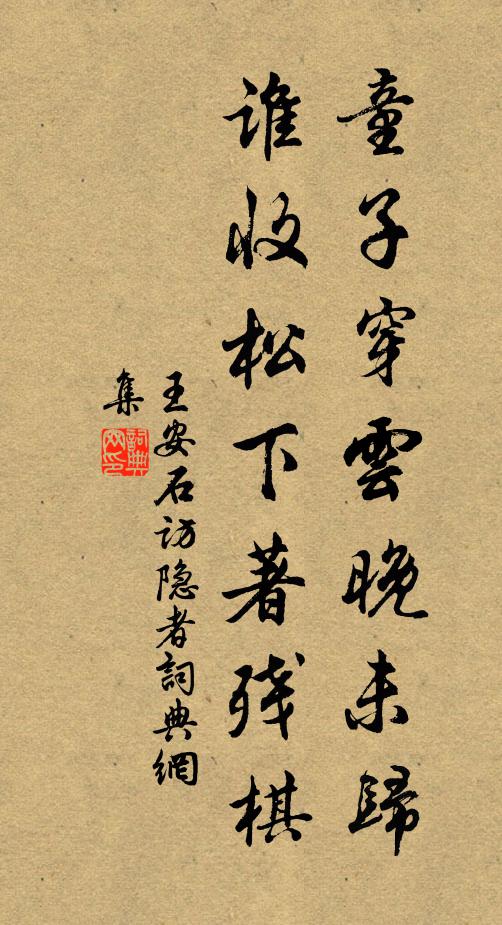 童子穿雲晚未歸
谁收松下著残棋
王安石访隐者詞典網
集
詞典網印